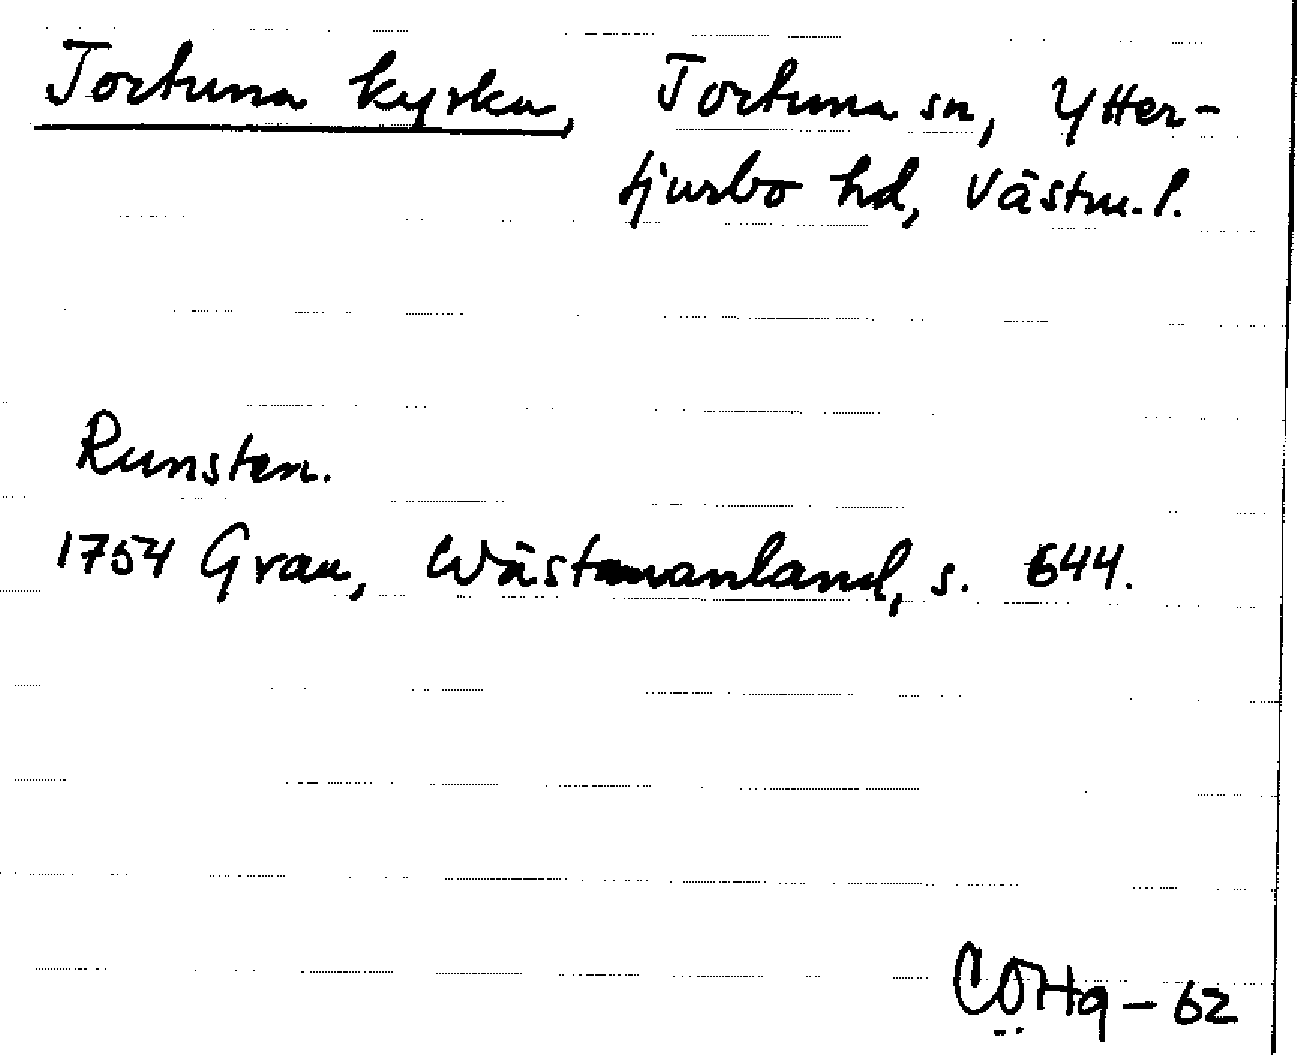 Tortuna kyrka, Tortuna sn, Ytter-
tjurbo hd, Västm. l.
Runsten.
1754 Grau, Wästmanland, s. 644.
CÖHg - 62